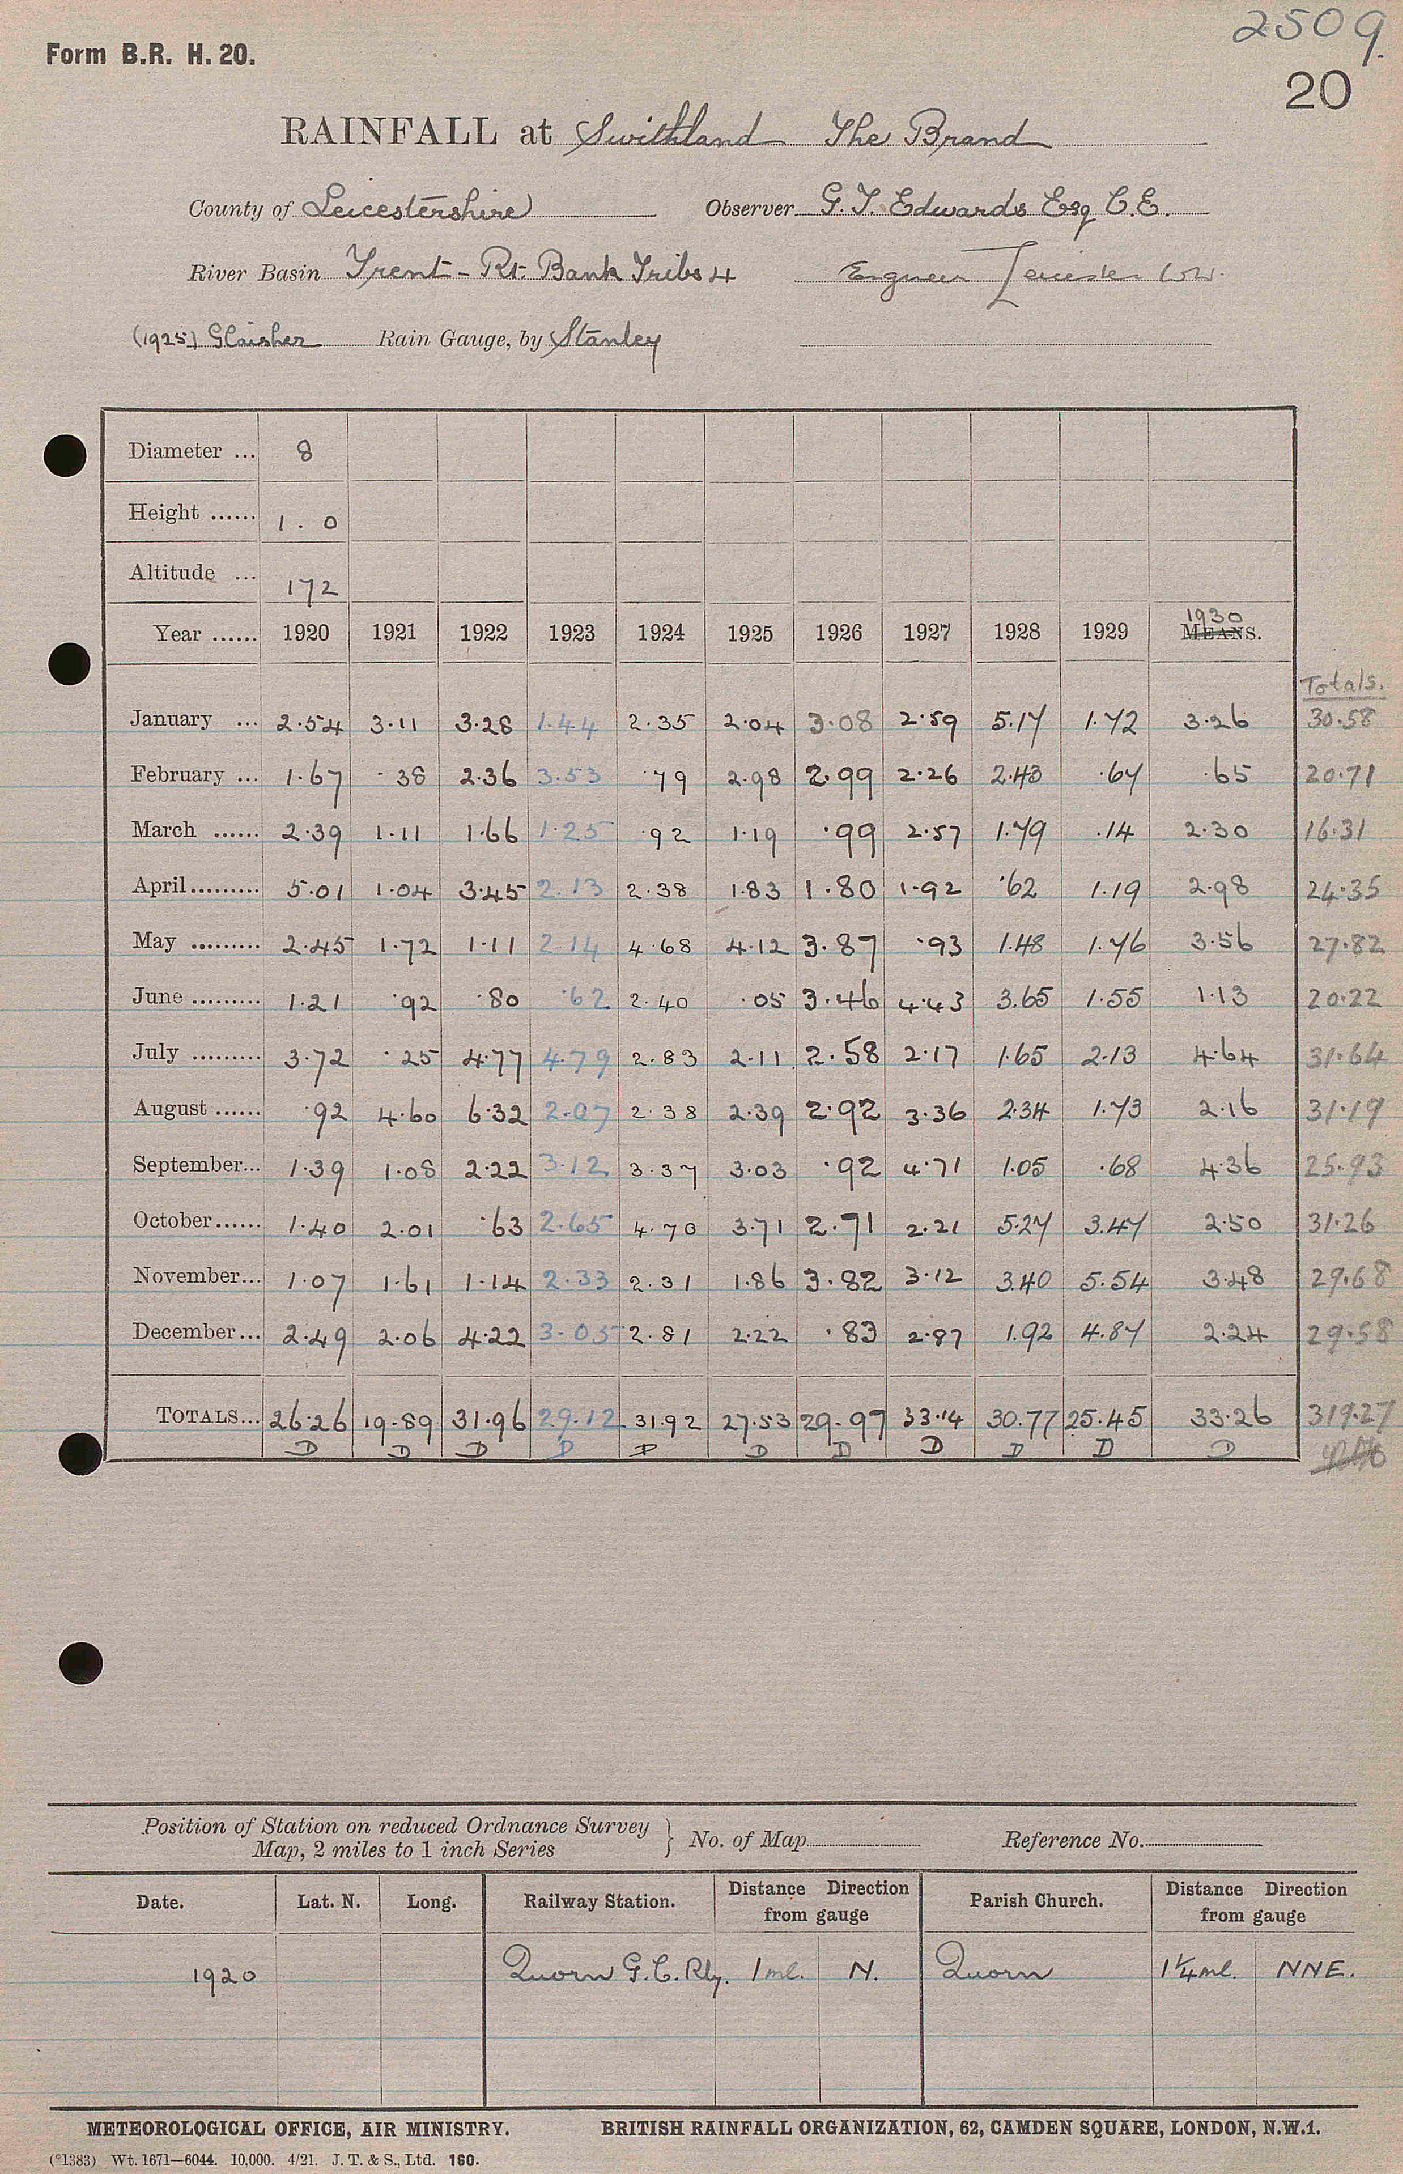 2509.
Form B.R. H. 20.
20
RAINFALL at Swithland The Brand
County of Leicestershire Observer G. T. Edwards Esq C.E.
River Basin Trent - Rt. Bank Tribs 4 Engineer Leicester
(1925) Glaisher Rain Gauge, by Stanley
Diameter ... 8
Height ...... 1 . 0
Altitude ... 172
1930
Year ...... 1920 1921 1922 1923 1924 1925 1926 1927 1928 1929 MEANS.
Totals.
January ... 2.54 3.11 3.28 1.44 2.35 2.04 3.08 2.59 5.17 1.72 3.26 30.58
February ... 1.67 .38 2.36 3.53 .79 2.98 2.99 2.26 2.43 .67 .65 20.71
March ...... 2.39 1.11 1.66 1.25 .92 1.19 .99 2.57 1.79 .14 2.30 16.31
April......... 5.01 1.04 3.45 2.13 2.38 1.83 1.80 1.92 .62 1.19 2.98 24.35
May ......... 2.45 1.72 1.11 2.14 4.68 4.12 3.87 .93 1.48 1.76 3.56 27.82
June ......... 1.21 .92 .80 .62 2.40 .05 3.46 4.43 3.65 1.55 1.13 20.22
July ......... 3.72 .25 4.77 4.79 2.83 2.11 2.58 2.17 1.65 2.13 4.64 31.64
August ...... .92 4.60 6.32 2.07 2.38 2.39 2.92 3.36 2.34 1.73 2.16 31.19
September... 1.39 1.08 2.22 3.12 3.37 3.03 .92 4.71 1.05 .68 4.36 25.93
October...... 1.40 2.01 .63 2.65 4.70 3.71 2.71 2.21 5.27 3.47 2.50 31.26
November... 1.07 1.61 1.14 2.33 2.31 1.86 3.82 3.12 3.40 5.54 3.48 29.68
December... 2.49 2.06 4.22 3.05 2.81 2.22 .83 2.87 1.92 4.87 2.24 29.58
TOTALS... 26.26 19.89 31.96 29.12 31.92 27.53 29.97 33.14 30.77 25.45 33.26 319.27
D D D D D D D D D D D
Position of Station on reduced Ordnance Survey
Map, 2 miles to 1 inch Series } No. of Map Reference No.
Date. Lat. N. Long. Railway Station. Distance Direction from gauge Parish Church. Distance Direction from gauge
1920 Quorn G.C. Rly. 1 ml. N. Quorn 1¼ ml. NNE.
METEOROLOGICAL OFFICE, AIR MINISTRY. BRITISH RAINFALL ORGANIZATION, 62, CAMDEN SQUARE, LONDON, N.W.1.
(°1383) Wt. 1671—6044. 10,000. 4/21. J. T. & S., Ltd. 160.